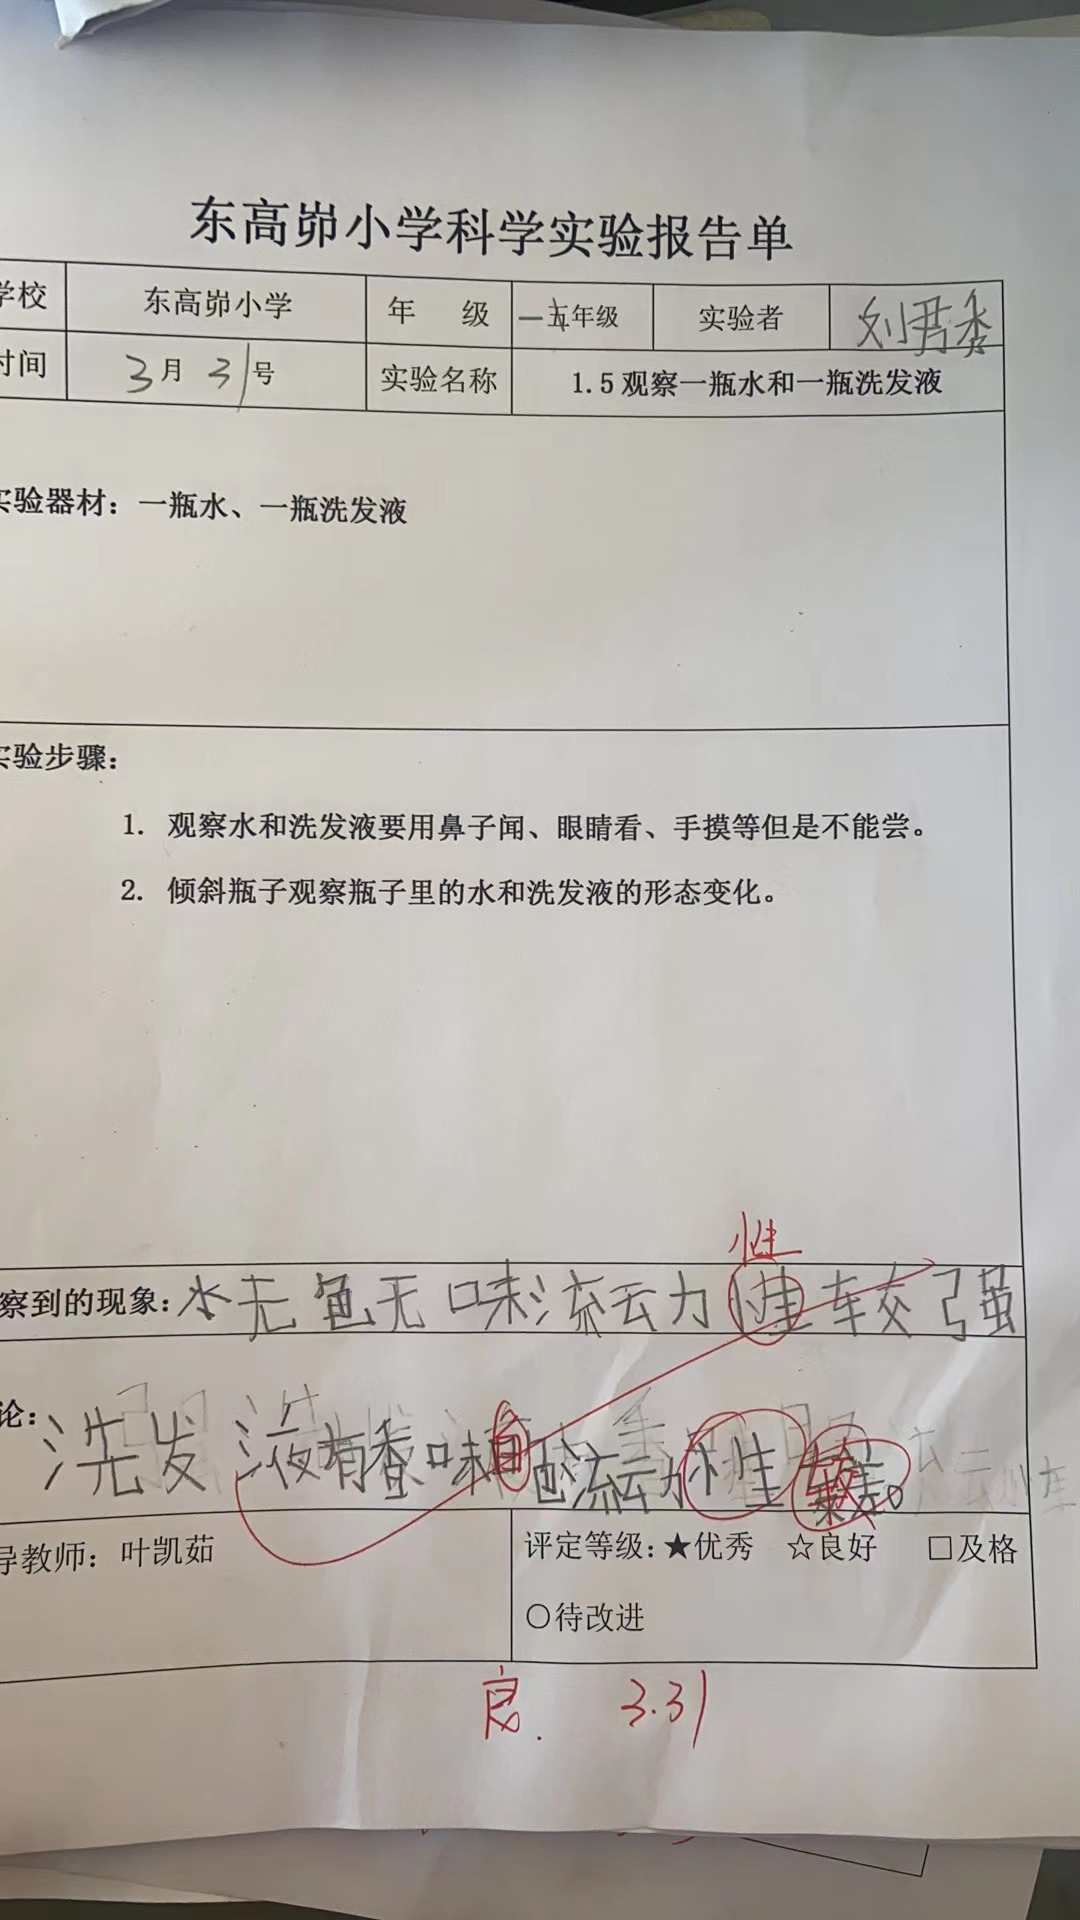 东高峁小学科学实验报告单
学校 东高峁小学 年 级 一年级 实验者 刘君秀
时间 3月31号 实验名称 1.5观察一瓶水和一瓶洗发液
实验器材：一瓶水、一瓶洗发液
实验步骤：
1. 观察水和洗发液要用鼻子闻、眼睛看、手摸等但是不能尝。
2. 倾斜瓶子观察瓶子里的水和洗发液的形态变化。
性
察到的现象：水无色无味流动性较强
论：洗发液有香味 色流动性较差。
导教师：叶凯茹 评定等级：★优秀 ☆良好 □及格
○待改进
良. 3.31